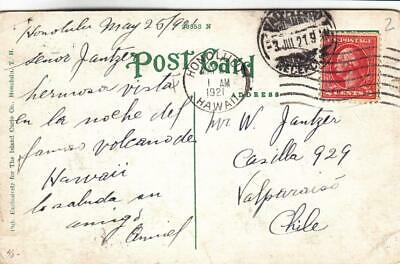 Honolulu May 26/921
señor Jantzer
hermosa vista
en la noche del
famoso volcano de
Hawaii
lo saluda su
amigo
Post Card
ADDRESS
HONOLULU
1 AM
1921
HAWAII
3 JUL 21 9
POSTAGE
CENTS
2
Mr W. Jantzer
Casilla 929
Valparaiso
Chile
Pub. Exclusively for The Island Curio Co., Honolulu, T. H.